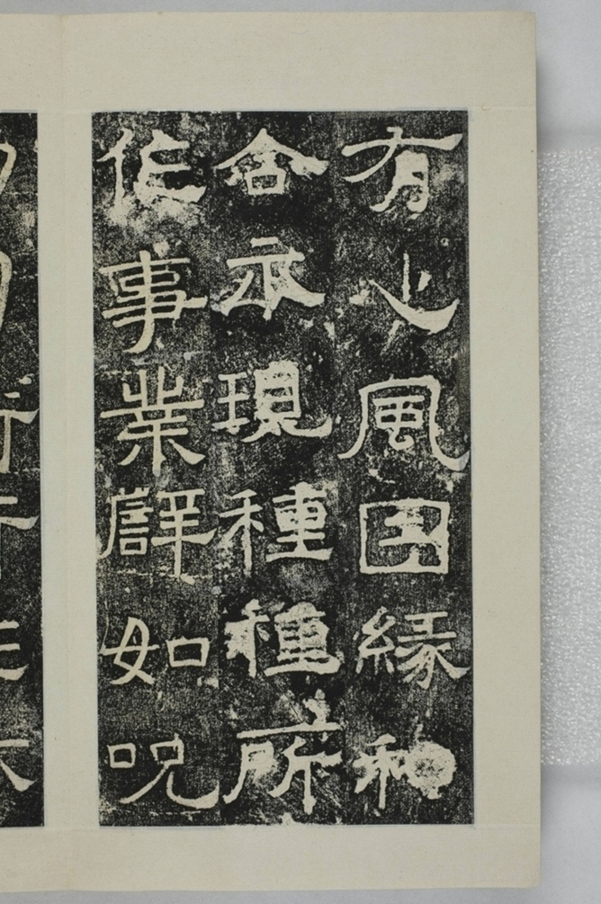 有心風因緣和
合示現種種所
作事業譬如呪